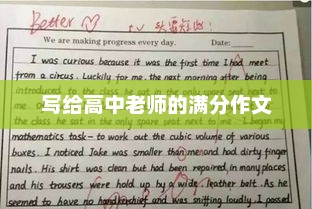 Better
We are making progress every day. Date:
I was curious because it was the first time I had meet
from a circus. Luckily for me. the next morning after being
introduced to the class he sat in the only spare seat next to
写给高中老师的满分作文
the class he sat in the only spare seat next to me. I began my
mathematics task - to work out the cubic volume of various
boxes. I noticed Jake was smaller than and had dirty finger
nails. His shirt was clean but had been repaired, in many places
and his trousers were hold up by a wide leather belt. As he
seemed to have no handkerchief and was sniffing loudly. I passed